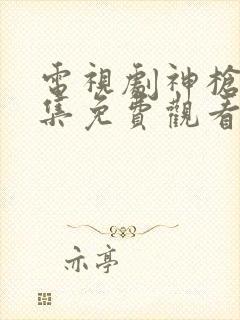 電視劇神槍
集免費觀看
亦亭